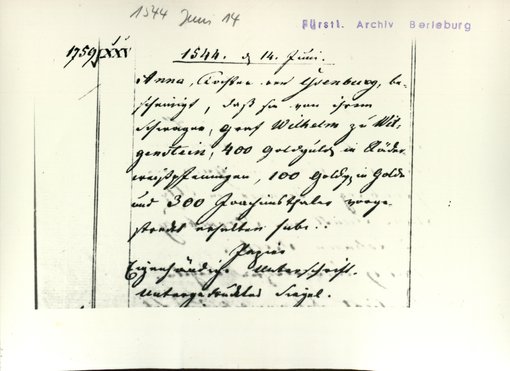 1544 Juni 14
Fürstl. Archiv Berleburg
1759
1544. d 14. Juni.
Anna, Tochter von Ysenburg, be-
scheinigt, daß sie von ihrem
Schwager, Graf Wilhelm zu Wit-
genstein, 400 Goldguld in Räder
weißpfennigen, 100 Goldg in Golde
und 300 Joachimsthaler vorge-
streckt erhalten habe.
Papier
Eigenhändige Unterschrift.
Untergedrücktes Siegel.